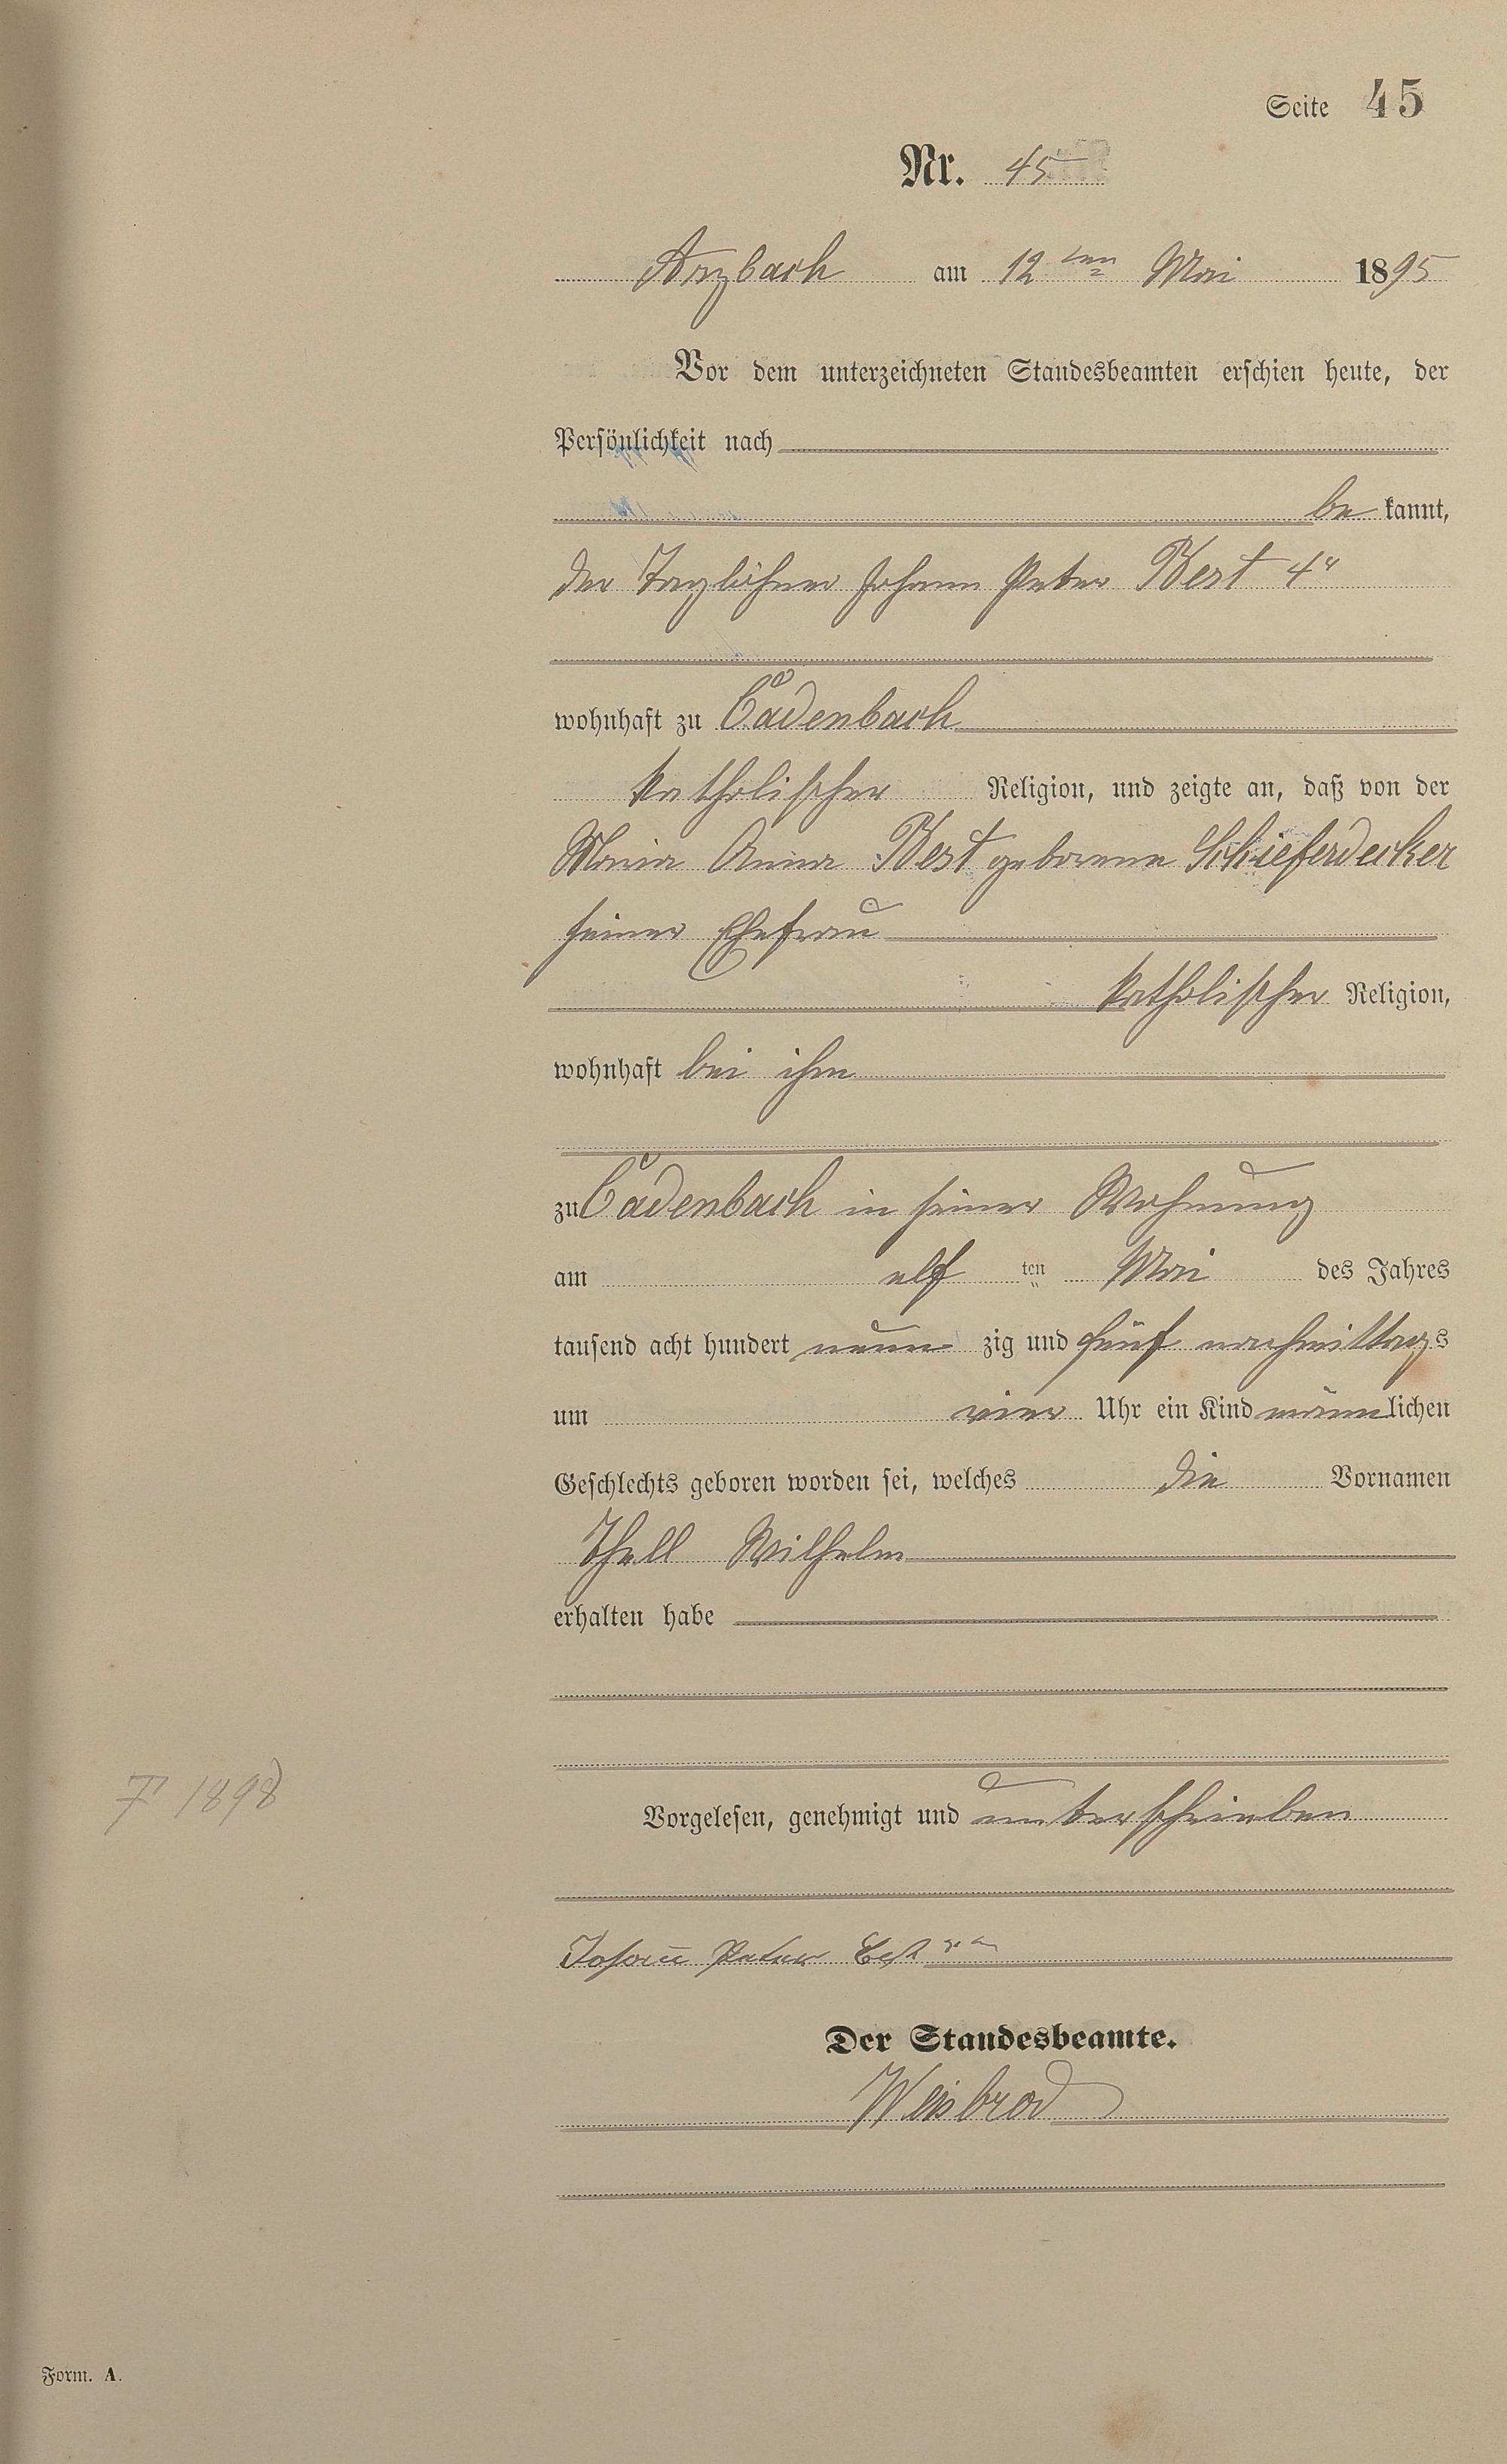 Seite 45
Nr. 45
Arzbach am 12ten Mai 1895
Vor dem unterzeichneten Standesbeamten erschien heute, der
Persönlichkeit nach
be kannt,
der Taglöhner Johann Peter Best 4r
wohnhaft zu Cadenbach
katholischer Religion, und zeigte an, daß von der
Maria Anna Best geborene Schieferdecker
seiner Ehefrau
katholischer Religion,
wohnhaft bei ihm
zu Cadenbach in seiner Wohnung
am elf ten Mai des Jahres
tausend acht hundert neun zig und fünf nachmittags
um vier Uhr ein Kind männlichen
Geschlechts geboren worden sei, welches die Vornamen
Wilhelm
erhalten habe
F 1898
Vorgelesen, genehmigt und unterschrieben
Johann Peter Best
Der Standesbeamte.
Weisbrod
Form. A.